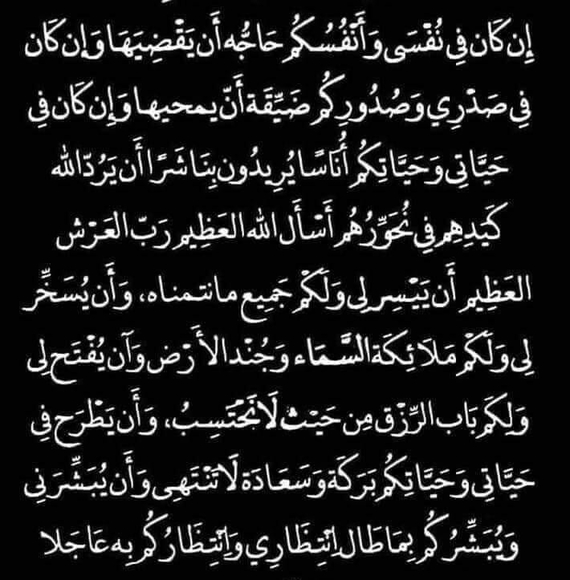 إِن كَان فِي نُفْسَى وَأَنْفُسُكُم حَاجُّه أَن يَقْضِيَهَا وَإِن كَان
فِي صَدْرِي وَصُدُورِكُم ضَيِّقَة أَنّ يمحيها وَإِن كَان فِي
حَيَّاتِي وَحَيَّاتِكُم أُنَاسًا يُرِيدُون بِنَا شَرًا أَن يَرُدّ الله
كَيَدِهِم فِي نُحَوِّرُهُم أَسْأَل الله العَظِيم رَبّ العَرْش
العَظِيم أَن يَيْسِر لِي وَلَكُم جَمِيع مانتمناه، وَأَن يُسَخِّر
لِي وَلَكُم مَلَائِكَة السَّمَاء وَجُنْد الأَرْض وَآن يُفْتَح لِي
وَلِكَم بَاب الرِّزْق مِن حَيْث لَا نَحْتَسِبُ، وَأَن يَطْرَح فِي
حَيَّاتِي وَحَيَّاتِكُم بَرَكَة وَسَعَادَة لَا تَنْتَهِى وَأَن يُبَشِّرَنِي
وَيُبَشِّرُكُم بِمَا طَال اِنْتِظَارِي وَاِنْتِظَارُكُم بِه عَاجَلا